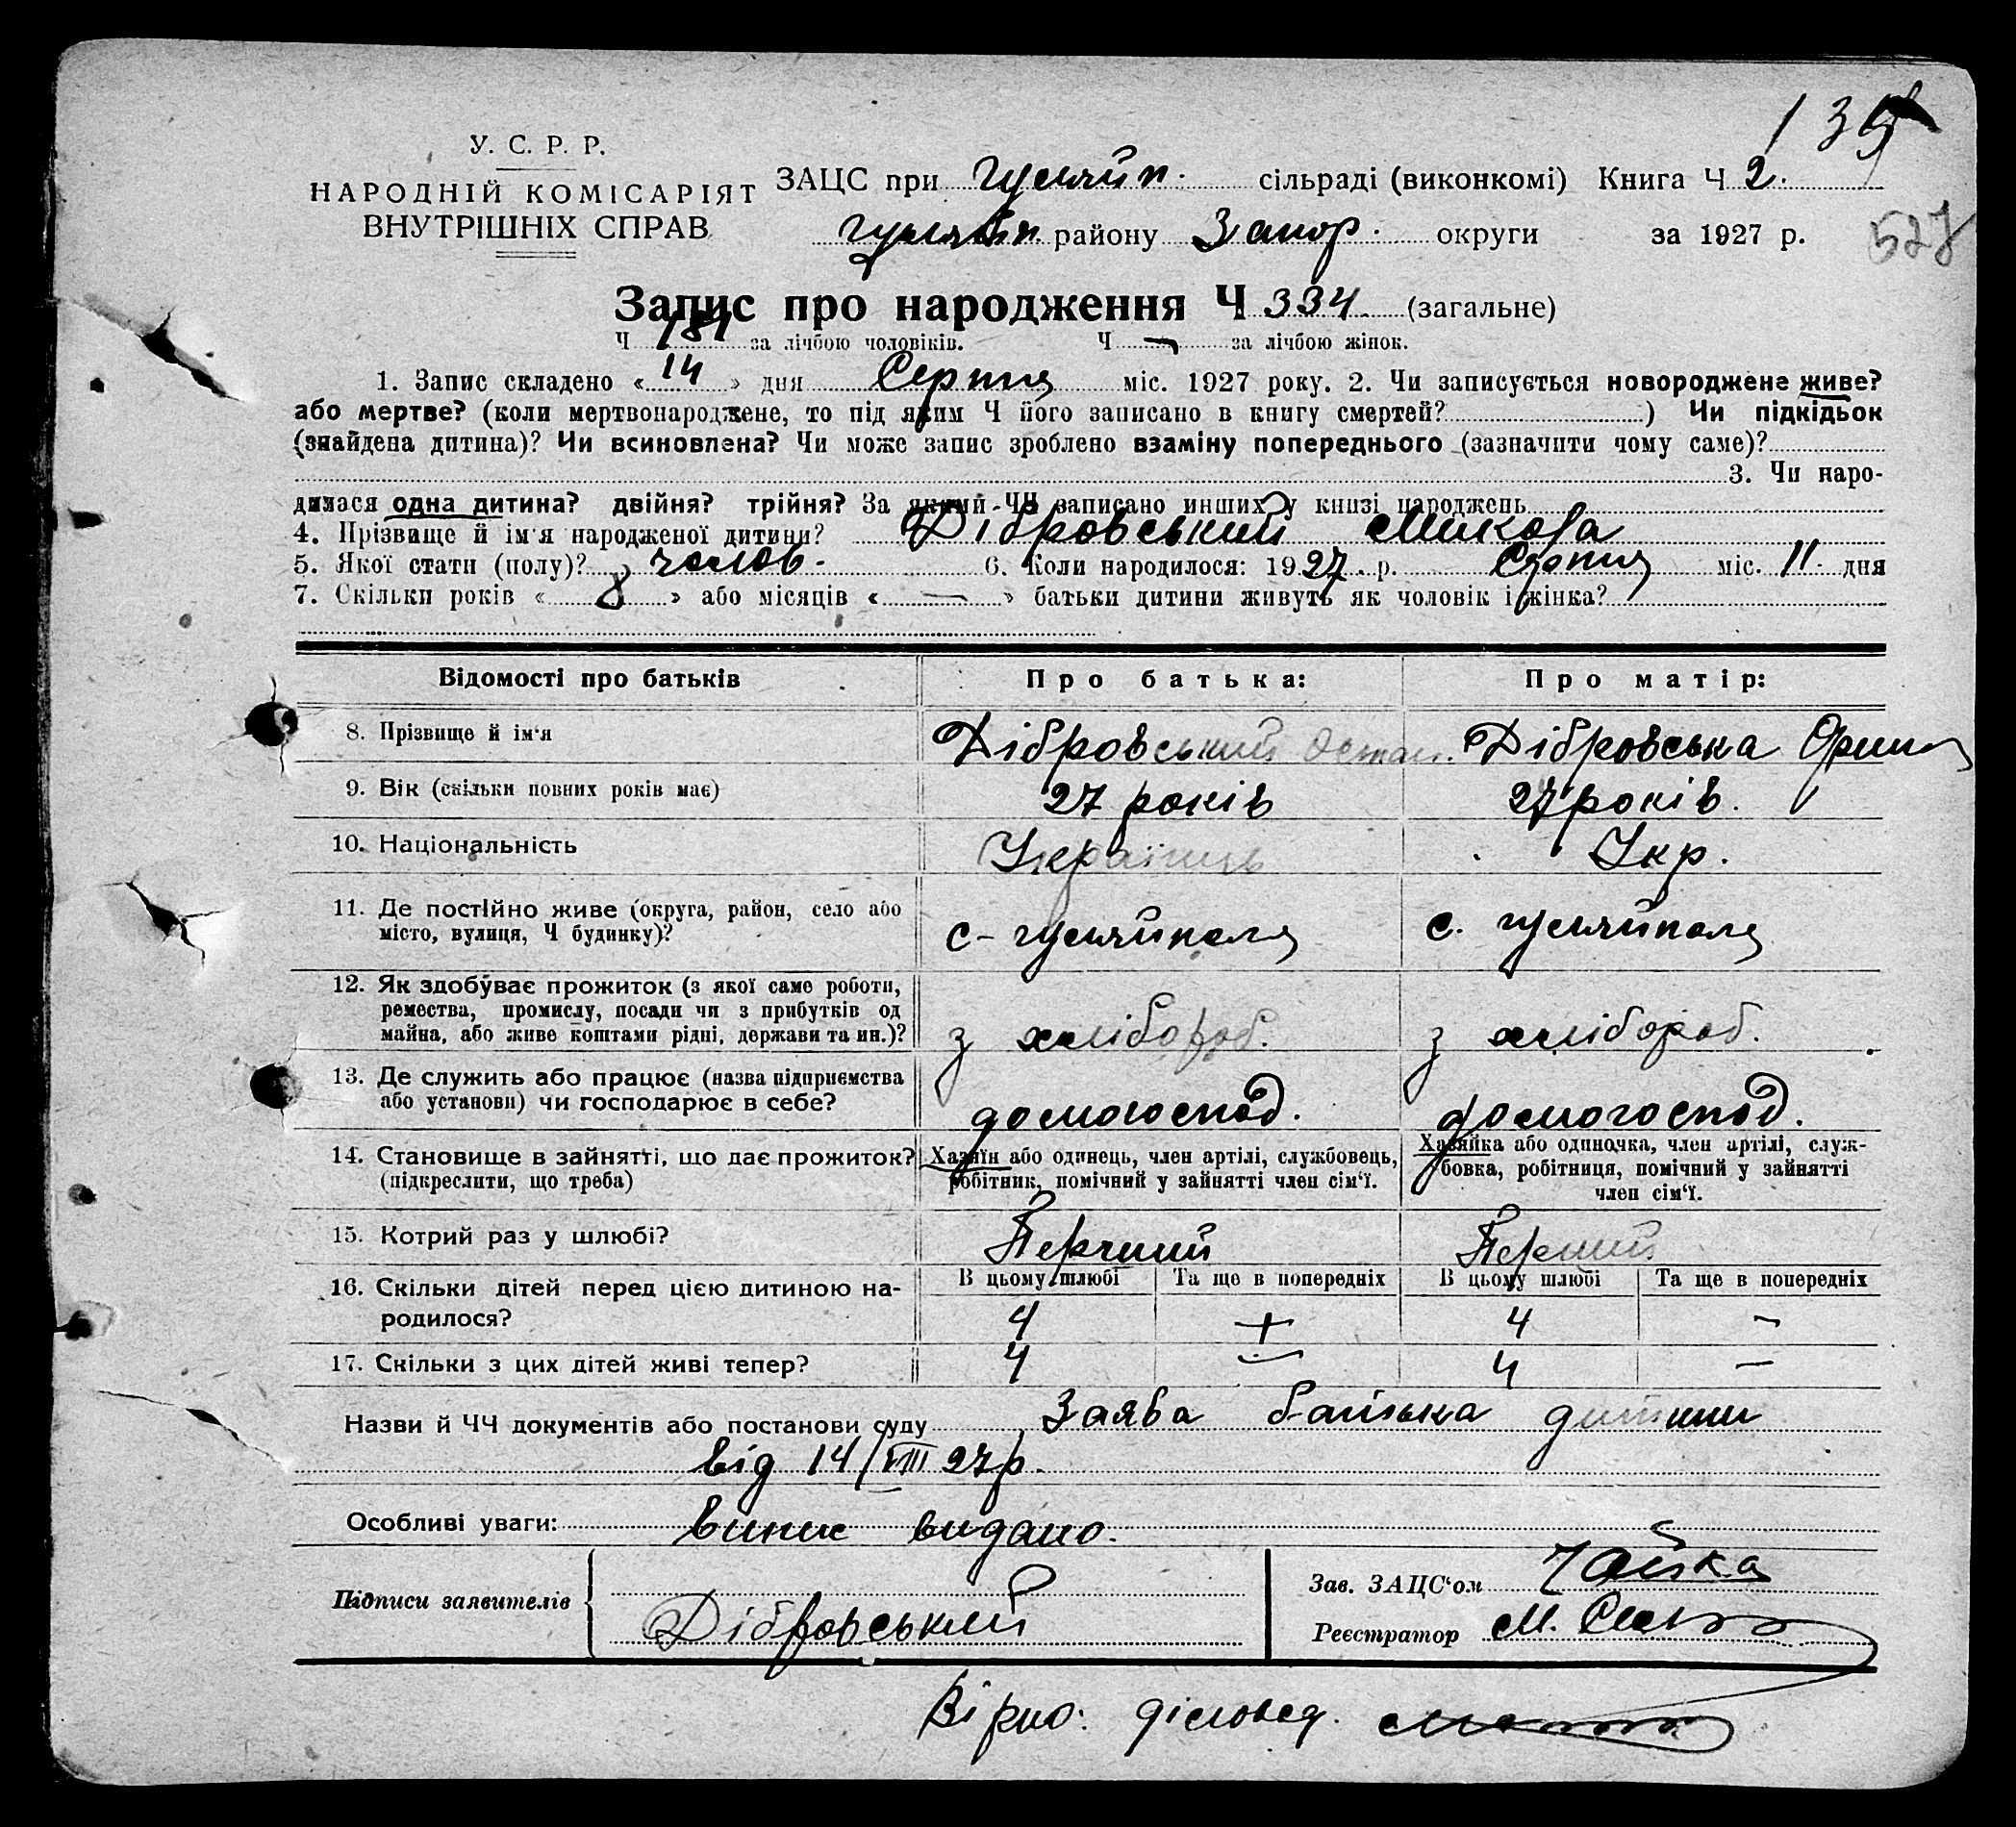 135
У. С. Р. Р.
НАРОДНІЙ КОМІСАРІЯТ
ВНУТРІШНІХ СПРАВ
ЗАЦС при Гуляйп. сільраді (виконкомі) Книга Ч 2.
Гуляйп. району Запор. округи за 1927 р.
527
Запис про народження Ч 334. (загальне)
Ч 181 за лічбою чоловіків. Ч — за лічбою жінок.
1. Запис складено « 14 » дня Серпня міс. 1927 року. 2. Чи записується новороджене живе?
або мертве? (коли мертвонароджене, то під яким Ч його записано в книгу смертей?) Чи підкідьок
(знайдена дитина)? Чи всиновлена? Чи може запис зроблено взаміну попереднього (зазначити чому саме)?
3. Чи наро-
дилася одна дитина? двійня? трійня? За якими ЧЧ записано инших у книзі народжень
4. Прізвище й ім'я народженої дитини? Дібровський Микола
5. Якої стати (полу)? чолов. 6. Коли народилося: 1927 р. Серпня міс. 11 дня
7. Скільки років « 8 » або місяців « — » батьки дитини живуть як чоловік і жінка?
Відомості про батьків Про батька: Про матір:
8. Прізвище й ім'я Дібровський Остап. Дібровська Орина
9. Вік (скільки повних років має) 27 років 27 років.
10. Національність Українець Укр.
11. Де постійно живе (округа, район, село або
місто, вулиця, Ч будинку)? с- Гуляйполе с. Гуляйполе
12. Як здобуває прожиток (з якої саме роботи,
ремества, промислу, посади чи з прибутків од
майна, або живе коштами рідні, держави та ин.)? з хлібороб. з хлібороб.
13. Де служить або працює (назва підприємства
або установи) чи господарює в себе? домогоспод. домогоспод.
14. Становище в зайнятті, що дає прожиток?
(підкреслити, що треба)
Хазяїн або одинець, член артілі, службовець,
робітник, помічний у зайнятті член сім'ї.
Хазяйка або одиночка, член артілі, служ-
бовка, робітниця, помічний у зайнятті
член сім'ї.
15. Котрий раз у шлюбі? Перший Перший
В цьому шлюбі Та ще в попередніх В цьому шлюбі Та ще в попередніх
16. Скільки дітей перед цією дитиною на-
родилося? 4 + 4 –
17. Скільки з цих дітей живі тепер? 4 – 4 –
Назви й ЧЧ документів або постанови суду Заява батька дитини
від 14/VIII 27р.
Особливі уваги: випис видано.
Підписи заявителів Дібровський
Зав. ЗАЦС'ом Чайка
Реєстратор М.
Вірно: діловод.